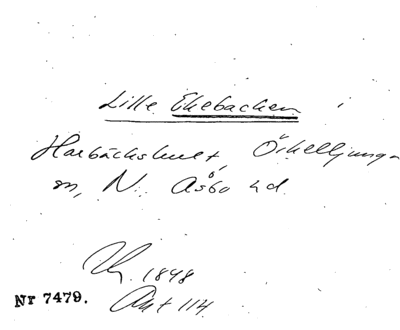 Lille Ekebacken i
Harbäckshult, Örkelljunga
sn, N. Åsbo hd.
1848
Nr 7479. Akt 114